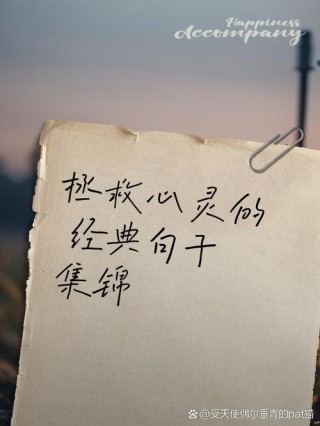 Happiness
Accompany
拯救心灵的
经典句子
集锦
@受天使偶尔垂青的pat猫